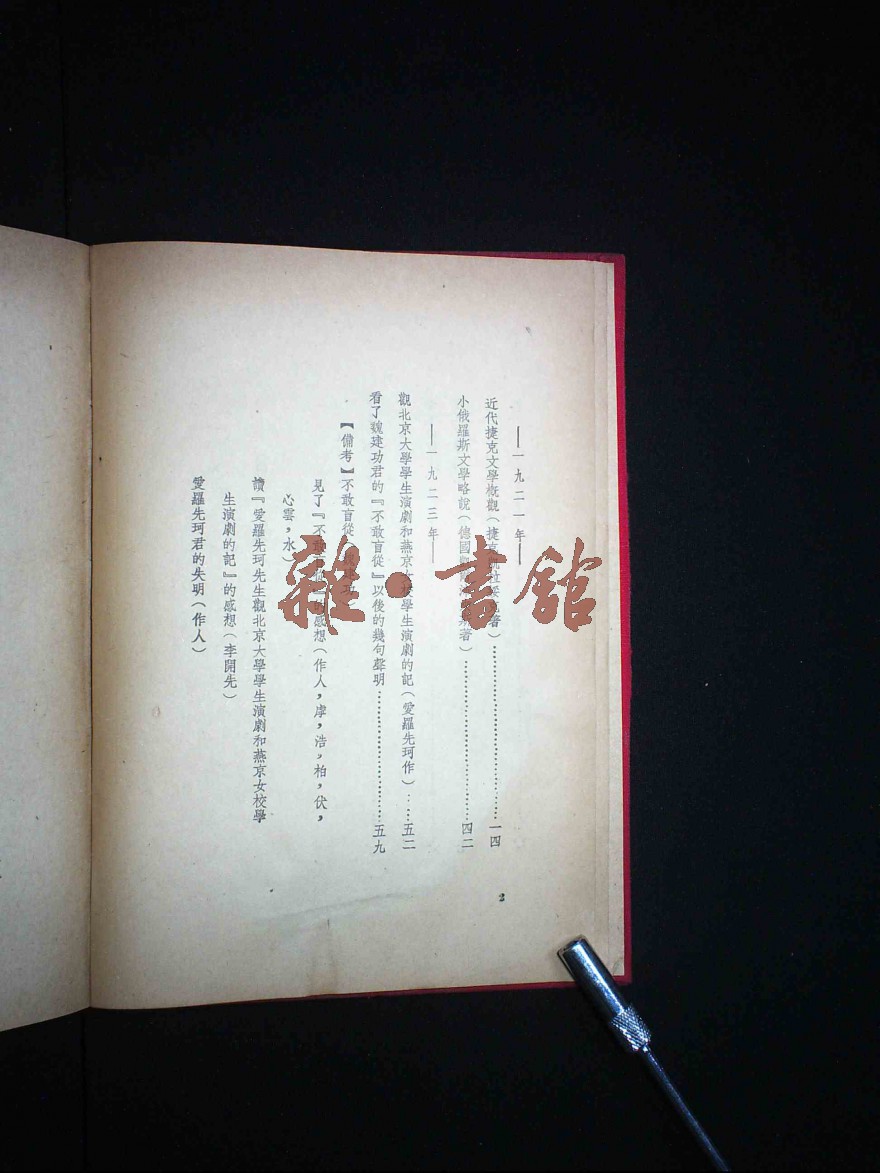 —一九二一年—
近代捷克文學概觀(捷 著)……一四
小俄羅斯文學略說(德國 著)……四二
—一九二三年—
觀北京大學學生演劇和燕京女校學生演劇的記(愛羅先珂作)……五二
看了魏建功君的『不敢盲從』以後的幾句聲明……五九
【備考】不敢盲從
見了『不敢 的感想(作人,虖,浩,柏,伏,
心雲,水)
讀『愛羅先珂先生觀北京大學學生演劇和燕京女校學
生演劇的記』的感想(李開先)
愛羅先珂君的失明(作人)
2
雜·書館